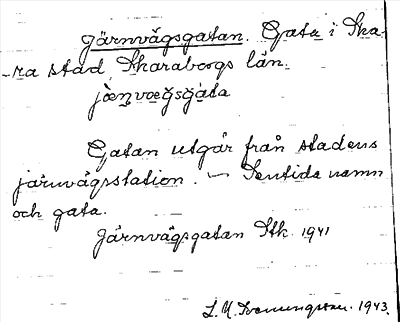 Järnvägsgatan. Gata i Ska-
-ra stad, Skaraborgs län.
jæ̀ṇvægsgàta
Gatan utgår från stadens
järnvägsstation. — Sentida namn
och gata.
Järnvägsgatan Stk. 1941
1943.